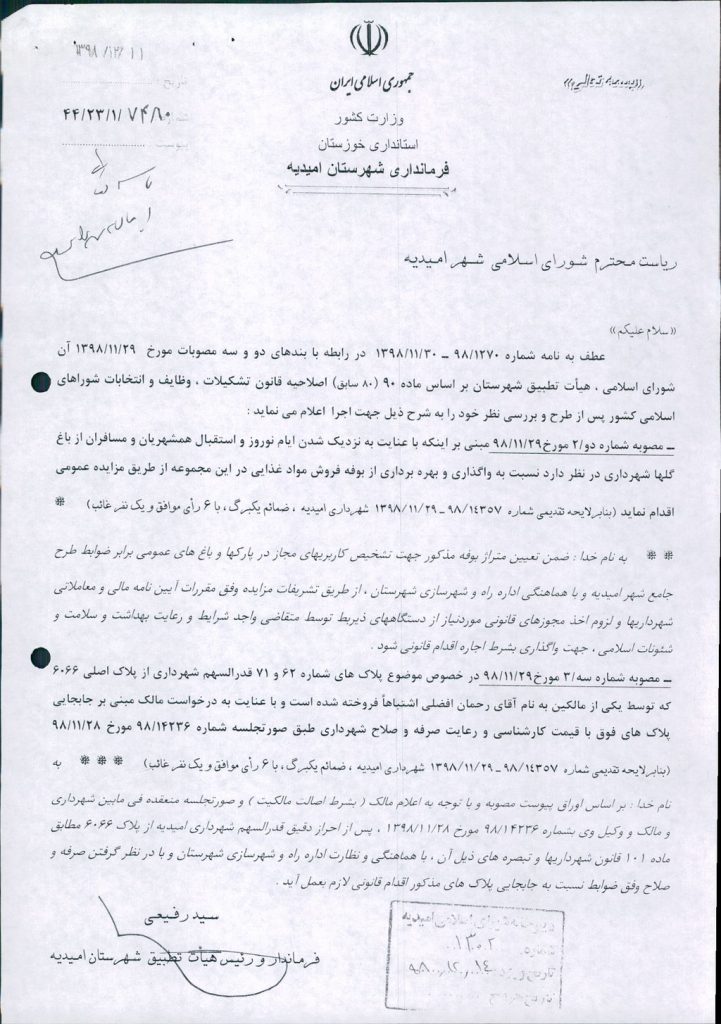 «بسمه تعالی»
جمهوری اسلامی ایران
وزارت کشور
استانداری خوزستان
فرمانداری شهرستان امیدیه
۱۳۹۸/۱۲/۱۱
تاریخ :
۴۴/۲۳/۱/۷۴۸۰
ریاست محترم شورای اسلامی شهر امیدیه
«سلام علیکم»
عطف به نامه شماره ۹۸/۱۲۷۰ ــ ۱۳۹۸/۱۱/۳۰ در رابطه با بندهای دو و سه مصوبات مورخ ۱۳۹۸/۱۱/۲۹ آن
شورای اسلامی ، هیأت تطبیق شهرستان بر اساس ماده ۹۰ (۸۰ سابق) اصلاحیه قانون تشکیلات ، وظایف و انتخابات شوراهای
اسلامی کشور پس از طرح و بررسی نظر خود را به شرح ذیل جهت اجرا اعلام می نماید :
ــ مصوبه شماره دو/۲ مورخ۹۸/۱۱/۲۹ مبنی بر اینکه با عنایت به نزدیک شدن ایام نوروز و استقبال همشهریان و مسافران از باغ
گلها شهرداری در نظر دارد نسبت به واگذاری و بهره برداری از بوفه فروش مواد غذایی در این مجموعه از طریق مزایده عمومی
اقدام نماید (بنابرلایحه تقدیمی شماره ۹۸/۱۴۳۵۷ ــ ۱۳۹۸/۱۱/۲۹ شهرداری امیدیه ، ضمائم یکبرگ ، با ۶ رأی موافق و یک نفر غائب) *
* * به نام خدا : ضمن تعیین متراژ بوفه مذکور جهت تشخیص کاربریهای مجاز در پارکها و باغ های عمومی برابر ضوابط طرح
جامع شهر امیدیه و با هماهنگی اداره راه و شهرسازی شهرستان ، از طریق تشریفات مزایده وفق مقررات آیین نامه مالی و معاملاتی
شهرداریها و لزوم اخذ مجوزهای قانونی موردنیاز از دستگاههای ذیربط توسط متقاضی واجد شرایط و رعایت بهداشت و سلامت و
شئونات اسلامی ، جهت واگذاری بشرط اجاره اقدام قانونی شود .
ــ مصوبه شماره سه/۳ مورخ۹۸/۱۱/۲۹ در خصوص موضوع پلاک های شماره ۶۲ و ۷۱ قدرالسهم شهرداری از پلاک اصلی ۶۰۶۶
که توسط یکی از مالکین به نام آقای رحمان افضلی اشتباهاً فروخته شده است و با عنایت به درخواست مالک مبنی بر جابجایی
پلاک های فوق با قیمت کارشناسی و رعایت صرفه و صلاح شهرداری طبق صورتجلسه شماره ۹۸/۱۴۲۳۶ مورخ ۹۸/۱۱/۲۸
(بنابرلایحه تقدیمی شماره ۹۸/۱۴۳۵۷ ــ ۱۳۹۸/۱۱/۲۹ شهرداری امیدیه ، ضمائم یکبرگ ، با ۶ رأی موافق و یک نفر غائب) * * * به
نام خدا : بر اساس اوراق پیوست مصوبه و با توجه به اعلام مالک ( بشرط اصالت مالکیت ) و صورتجلسه منعقده فی مابین شهرداری
و مالک و وکیل وی بشماره ۹۸/۱۴۲۳۶ مورخ ۱۳۹۸/۱۱/۲۸ ، پس از احراز دقیق قدرالسهم شهرداری امیدیه از پلاک ۶۰۶۶ مطابق
ماده ۱۰۱ قانون شهرداریها و تبصره های ذیل آن ، با هماهنگی و نظارت اداره راه و شهرسازی شهرستان و با در نظر گرفتن صرفه و
صلاح وفق ضوابط نسبت به جابجایی پلاک های مذکور اقدام قانونی لازم بعمل آید .
سید رفیعی
فرماندار و رئیس هیأت تطبیق شهرستان امیدیه